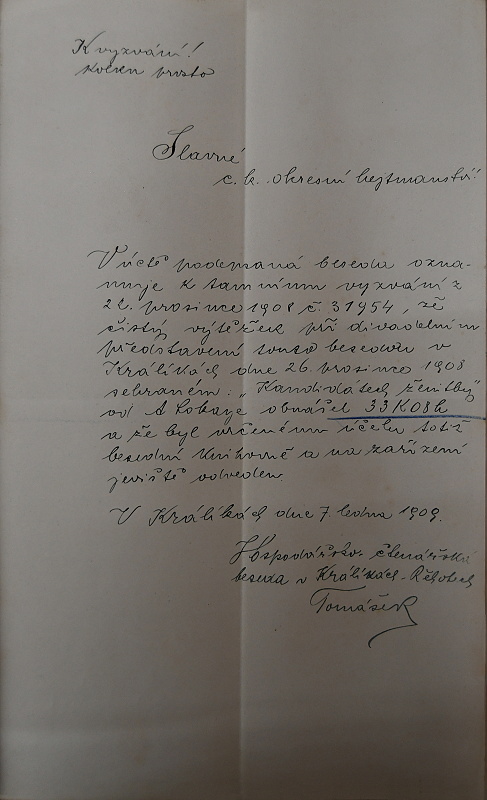 K vyzvání!
kolku prosto
Slavné
c. k. okresní hejtmanství!
V úctě podepsaná beseda ozna-
muje k tamnímu vyzvání z
22. prosince 1908 č. 31954, že
čistý výtěžek při divadelním
představení touto besedou v
Králíkách dne 26. prosince 1908
sehraném: „Kandidátech ženitby"
od A Lokaye obnášel 33 K 08 h
a že byl určenému účelu totiž
besední knihovně a na zařízení
jeviště odveden.
V Králíkách dne 7. ledna 1909.
Hospodářsko-čtenářská
beseda v Králíkách-
Tomášek